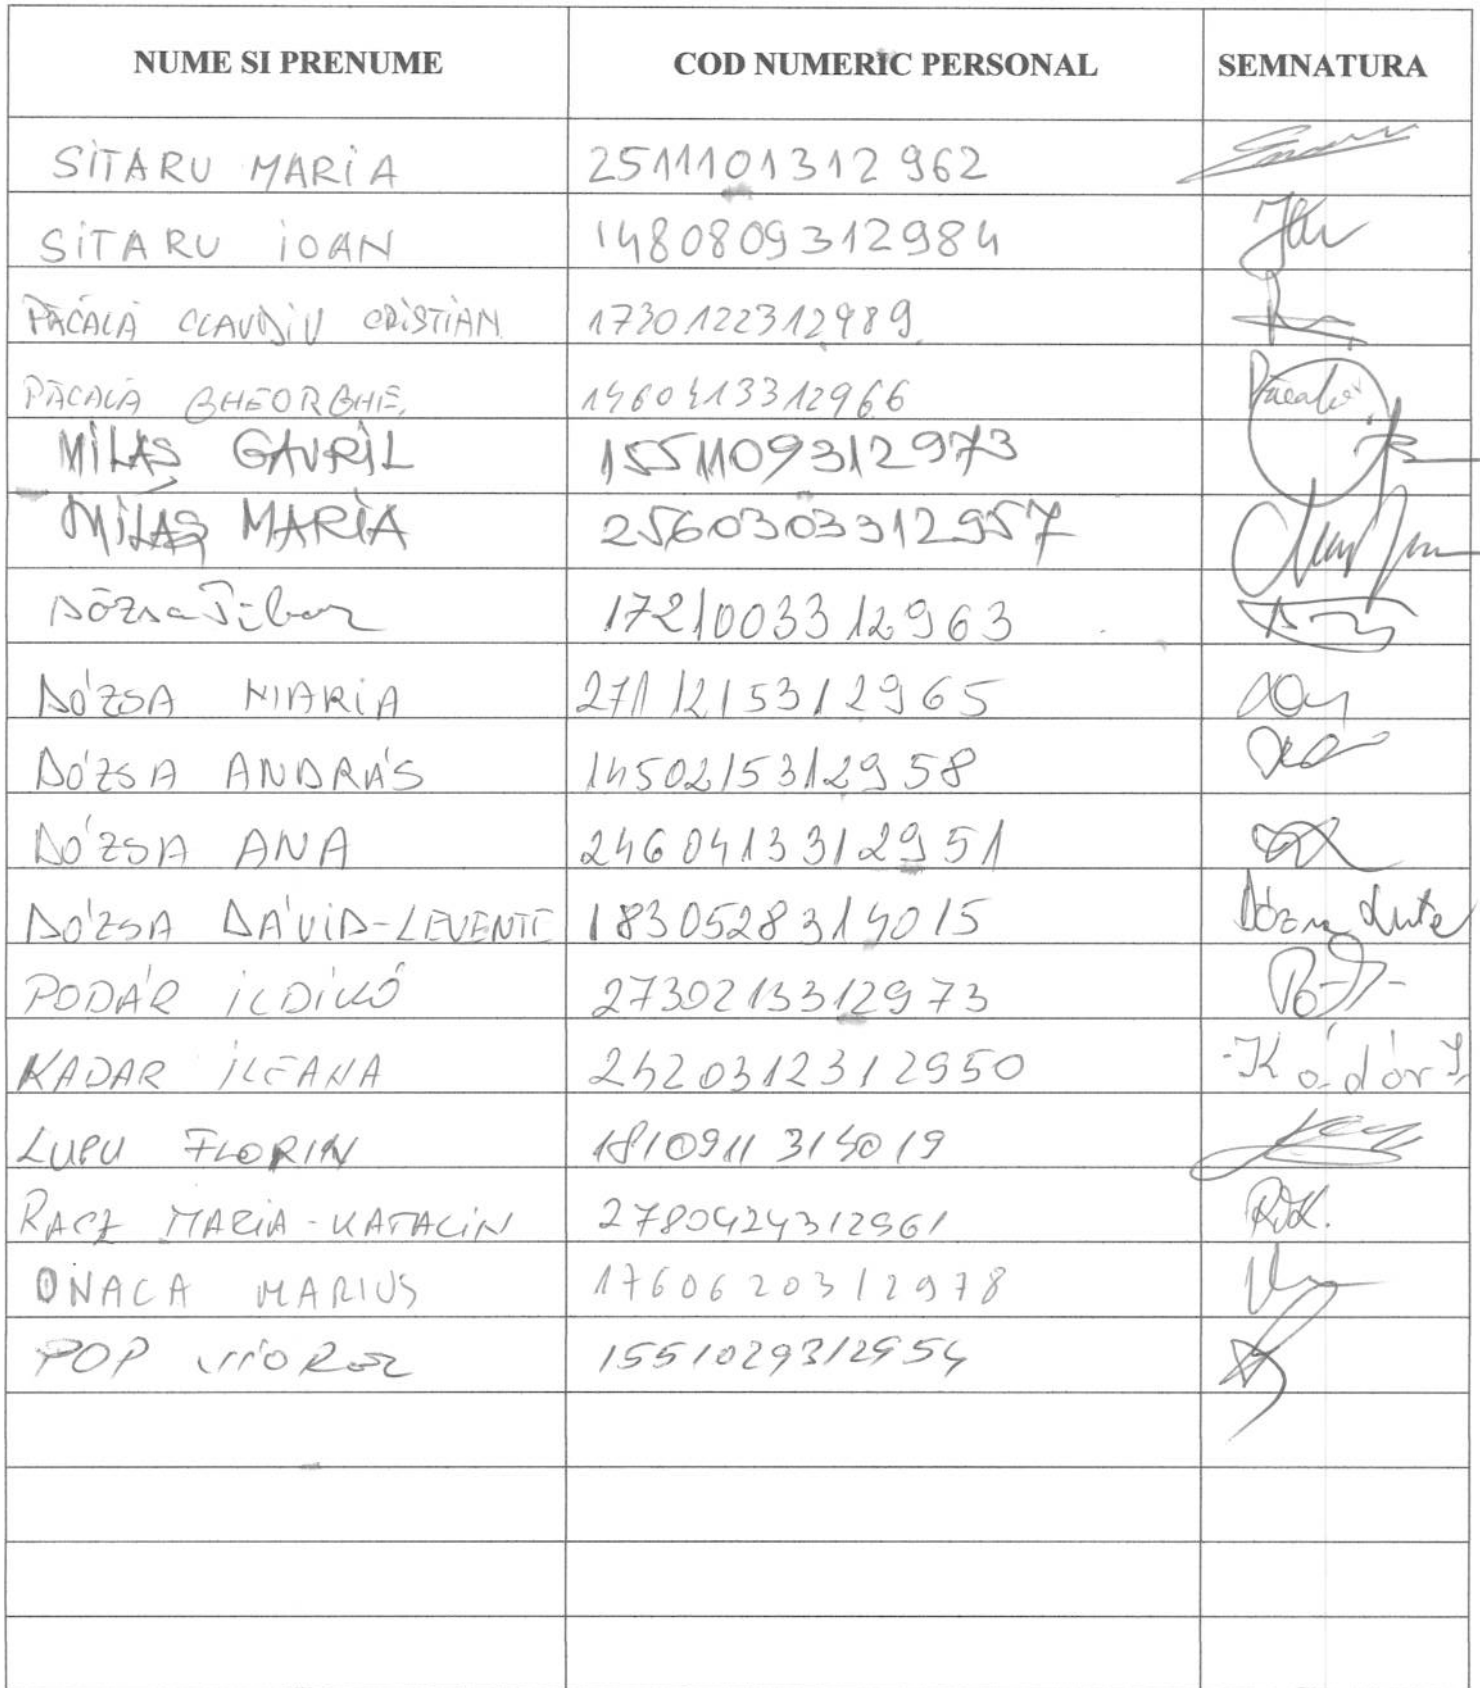 NUME SI PRENUME COD NUMERIC PERSONAL SEMNATURA
SITARU MARIA 2511101312962
SITARU IOAN 1480809312984
PĂCALĂ CLAUDIU CRISTIAN 1730122312989
PĂCALĂ GHEORGHE 1460413312966 Păcală
MILAȘ GAVRIL 1551109312973
MILAȘ MARIA 2560303312957
Dózsa Tibor 1721003312963
DÓZSA MARIA 2711215312965
DÓZSA ANDRÁS 1450215312958
DÓZSA ANA 2460413312951
DÓZSA DÁVID-LEVENTE 1830528314015 Dózsa
PODÁR ILDIKÓ 2730213312973
KADAR ILEANA 2420312312950 Kádár I.
LUPU FLORIN 1810911314019
RACZ MARIA-KATALIN 2780424312961 R.K.
ONACA MARIUS 1760620312978
POP VIOREL 1551029312954